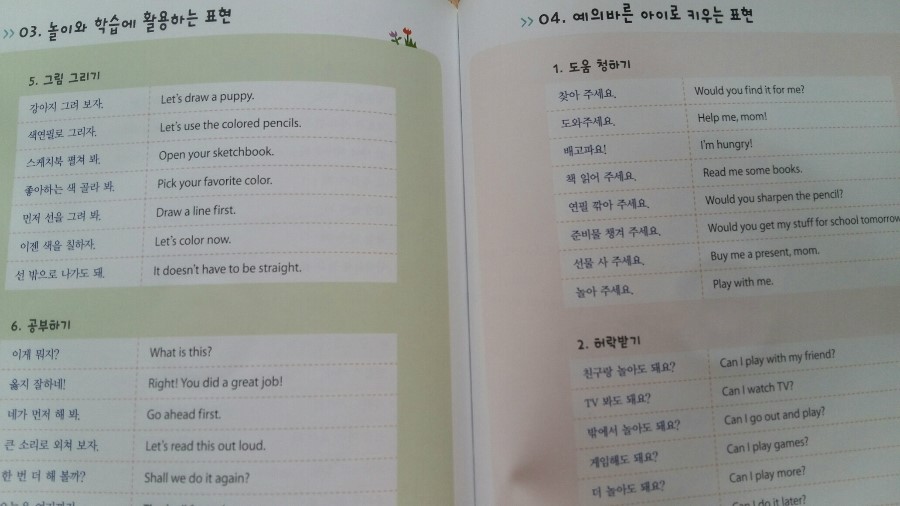 >> 03. 놀이와 학습에 활용하는 표현
5. 그림 그리기
강아지 그려 보자. Let's draw a puppy.
색연필로 그리자. Let's use the colored pencils.
스케치북 펼쳐 봐. Open your sketchbook.
좋아하는 색 골라 봐. Pick your favorite color.
먼저 선을 그려 봐. Draw a line first.
이젠 색을 칠하자. Let's color now.
선 밖으로 나가도 돼. It doesn't have to be straight.
6. 공부하기
이게 뭐지? What is this?
옳지 잘하네! Right! You did a great job!
네가 먼저 해 봐. Go ahead first.
큰 소리로 외쳐 보자. Let's read this out loud.
한 번 더 해 볼까? Shall we do it again?
>> 04. 예의바른 아이로 키우는 표현
1. 도움 청하기
찾아 주세요. Would you find it for me?
도와주세요. Help me, mom!
배고파요! I'm hungry!
책 읽어 주세요. Read me some books.
연필 깎아 주세요. Would you sharpen the pencil?
준비물 챙겨 주세요. Would you get my stuff for school tomorrow
선물 사 주세요. Buy me a present, mom.
놀아 주세요. Play with me.
2. 허락받기
친구랑 놀아도 돼요? Can I play with my friend?
TV 봐도 돼요? Can I watch TV?
밖에서 놀아도 돼요? Can I go out and play?
게임해도 돼요? Can I play games?
더 놀아도 돼요? Can I play more?
Can I do it later?